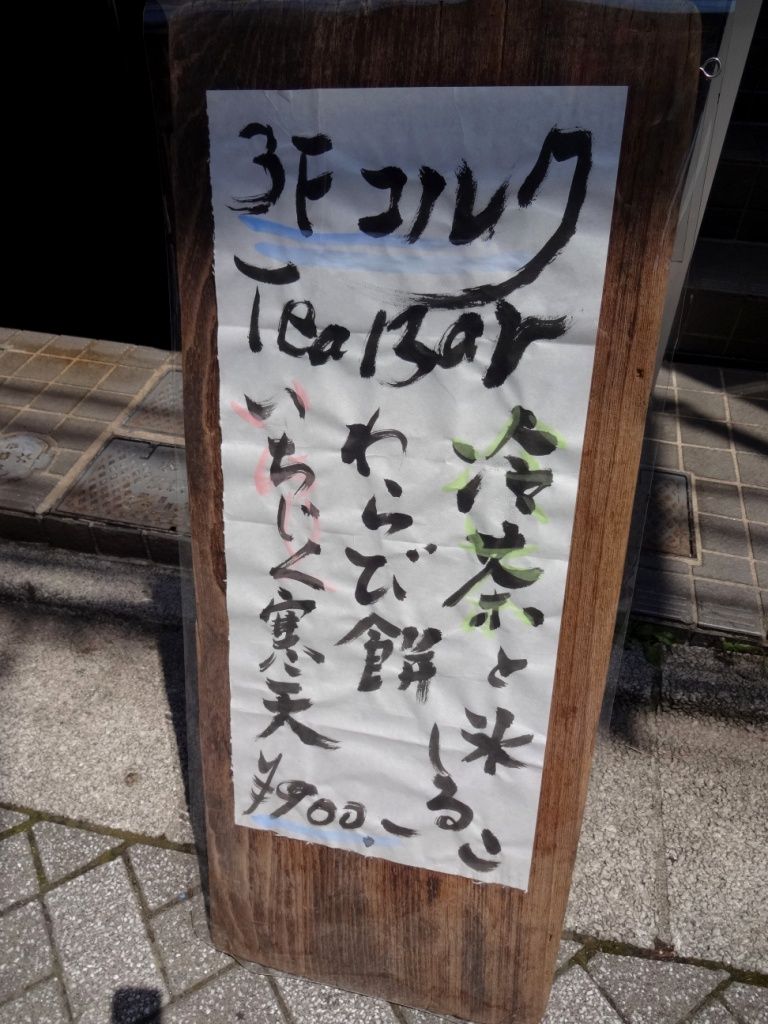 3F コルク
Tea Bar
冷茶と米しるこ
わらび餅
いちじく寒天
¥900.-